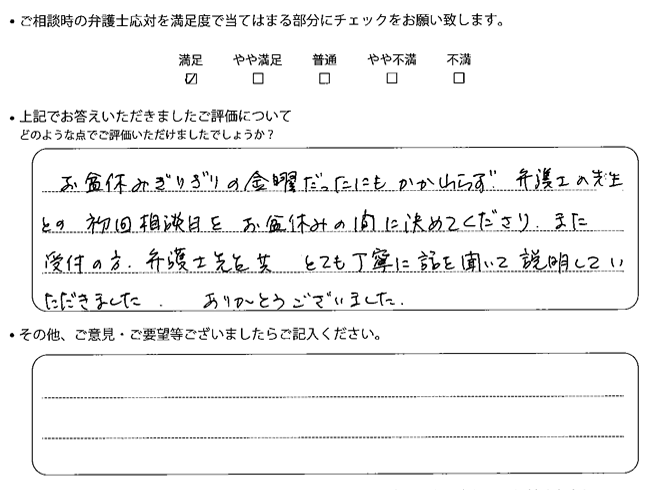 • ご相談時の弁護士応対を満足度で当てはまる部分にチェックをお願い致します。
満足 やや満足 普通 やや不満 不満
☑ □ □ □ □
• 上記でお答えいただきましたご評価について
どのような点でご評価いただけましたでしょうか？
お盆休みぎりぎりの金曜だったにもかかわらず 弁護士の先生
との 初回相談日を お盆休みの間に決めてくださり. また
受付の方. 弁護士先生共 とても丁寧に話を聞いて説明してい
ただきました. ありがとうございました.
• その他、ご意見・ご要望等ございましたらご記入ください。